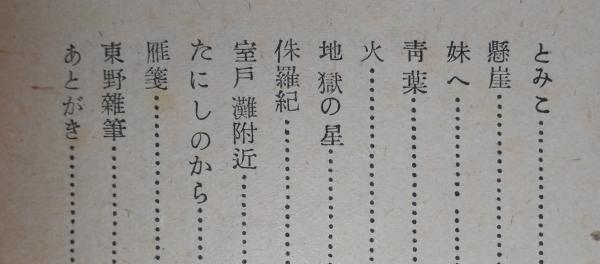 とみこ
懸崖
妹へ
靑葉
火
地獄の星
侏羅紀
室戸灘附近
たにしのから
雁箋
東野雜筆
あとがき